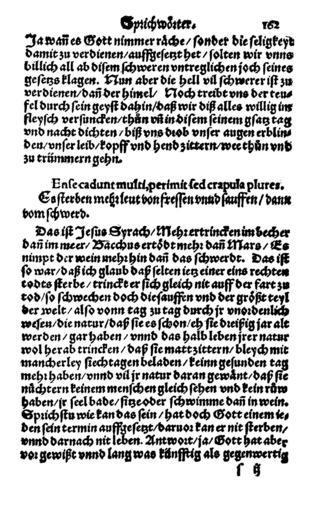 Sprichwörter. 162
Ja wañ es Gott nimmer räche/ sonder die seligkeyt
damit zu verdienen/ auffgesetzt het/ solten wir vnns
billich all ab disem schweren vntreglichen joch seines
gesetzs klagen. Nun aber die hell vil schwerer ist zu
verdienen/ dañ der himel/ Noch treibt vns der teu-
fel durch sein geyst dahin/ daß wir diß alles willig ins
fleysch versuncken/ thůn vñ in disem seinem gsatz tag
vnd nacht dichten/ biß vns drob vnser augen erblin-
den/ vnser leib/ kopff vnd hend zittern/ wee thůn vnd
zu trümmern gehn.
Ense cadunt multi, perimit sed crapula plures.
Es sterben mehr leut von fressen vnnd sauffen/ dann
vom schwerd.
Das ist Jesus Syrach/ Mehr ertrincken im becher
dañ im meer/ Bacchus ertödt mehr dañ Mars/ Es
nimpt der wein mehr hin dañ das schwerdt. Das ist
so war/ daß ich glaub daß selten ietz einer eins rechten
todts sterbe/ trinckt er sich gleich nit auff der fart zu
tod/ so schwechen doch die sauffen vnd der größt teyl
der welt/ also vonn tag zu tag durch jr vnordenlich
wesen/ die natur/ daß sie es schon/ eh sie dreißig jar alt
werden/ gar haben/ vnnd das halb leben jrer natur
wol herab trincken/ daß sie matt zittern/ bleych mit
mancherley siechtagen beladen/ keinn gesunden tag
mehr haben/ vnnd vil jr natur daran gewänt/ daß sie
nüchtern keinem menschen gleich sehen vnd kein růw
haben/ jr seel bade/ sitze oder schwimme dañ in wein.
Sprichstu wie kan das sein/ hat doch Gott einem ie-
den sein termin auffgesetzt/ daruor kan er nit sterben/
vnnd darnach nit leben. Antwort/ ja/ Gott hat aber
vor gewißt vnnd lang was künfftig als gegenwertig